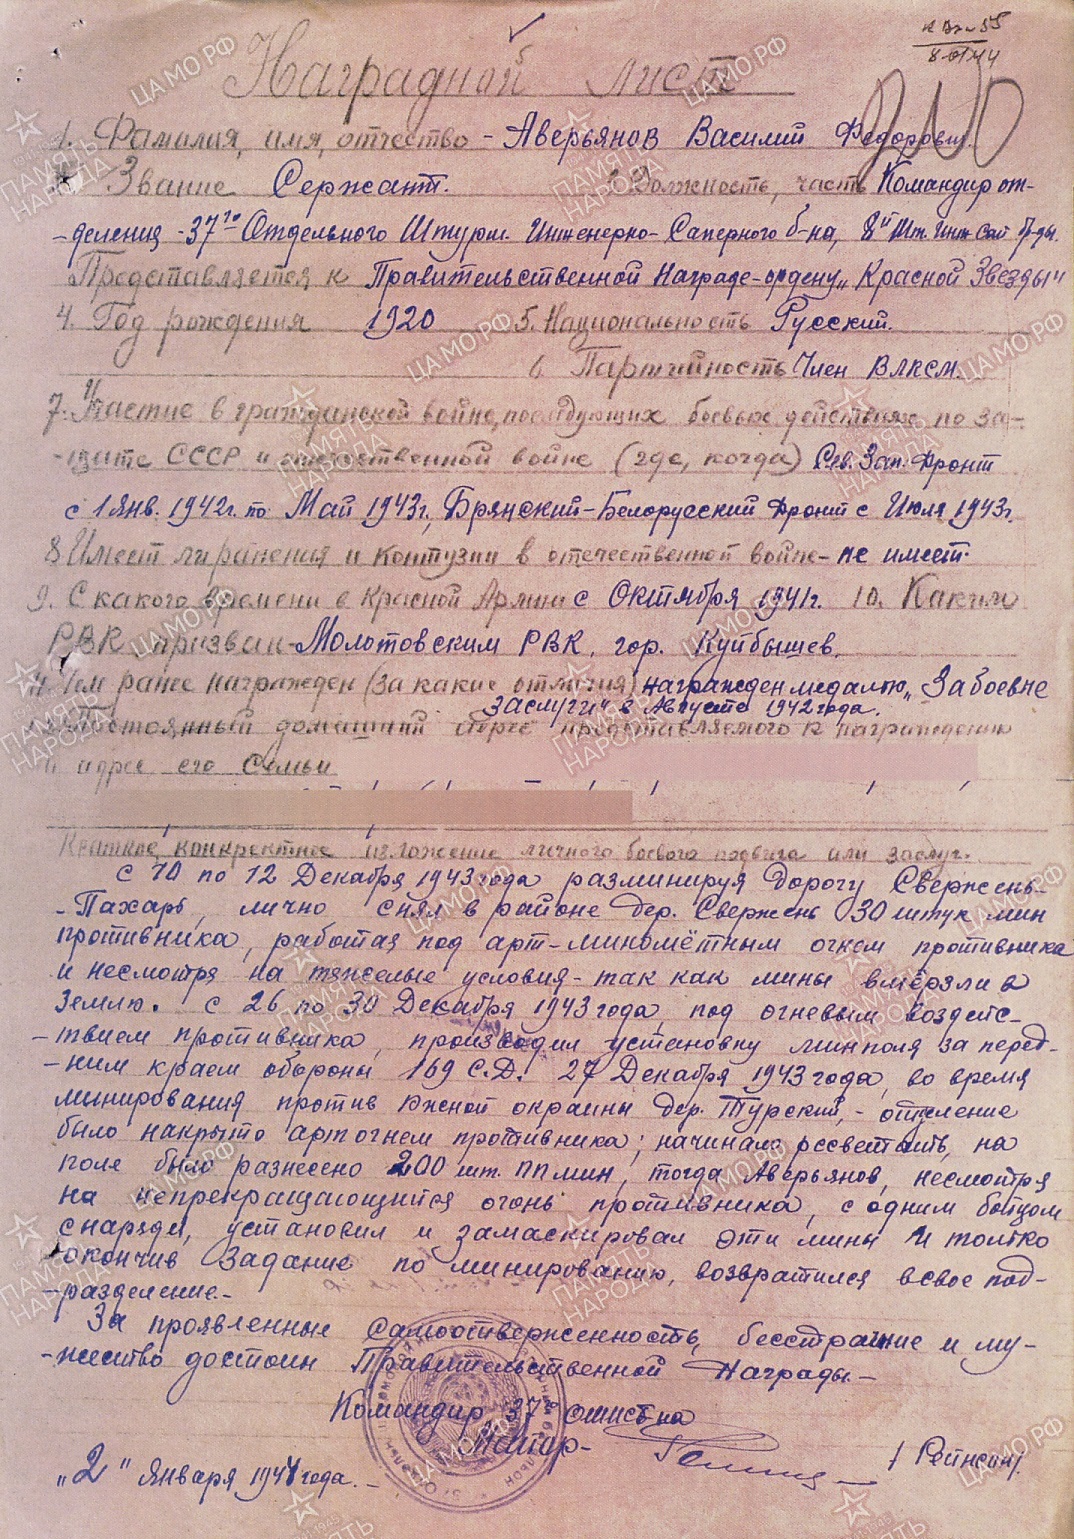 к Вх. 55
8-01-44
Наградной лист
1. Фамилия, имя, отчество - Аверьянов Василий Федорович.
Звание Сержант. Должность, часть Командир от-
-деления - 37го Отдельного Штурм. Инженерно-Саперного б-на, 8й Шт. Инж-Сап бр-ды.
Представляется к Правительственной Награде-ордену „Красной Звезды"
4. Год рождения 1920 5. Национальность Русский.
6. Партийность Член ВЛКСМ.
7. Участие в гражданской войне, последующих боевых действиях по за-
-щите СССР и отечественной войне (где, когда) Сев. Зап. Фронт
с 1 янв. 1942г. по Май 1943г., Брянский-Белорусский Фронт с Июля 1943г.
8 Имеет ли ранения и контузии в отечественной войне - не имеет.
9. С какого времени в Красной Армии с Октября 1941г. 10. Каким
РВК призван - Молотовским РВК, гор. Куйбышев.
11. Чем ранее награжден (за какие отличия) награжден медалью „За боевые
заслуги" в Августе 1942 года.
12. Постоянный домашний адрес представляемого к награждению
и адрес его семьи
Краткое конкретное изложение личного боевого подвига или заслуг.
С 10 по 12 Декабря 1943 года разминируя дорогу Свержень-
-Пахарь, лично снял в районе дер. Свержень 30 штук мин
противника, работая под арт-миномётным огнем противника
и несмотря на тяжелые условия - так как мины вмёрзли в
Землю. С 26 по 30 Декабря 1943 года, под огневым воздейс-
-твием противника, производил установку минполя за перед-
-ним краем обороны 169 С.Д. 27 Декабря 1943 года, во время
минирования против Южной окраины дер. Турский, - отделение
было накрыто артогнем противника; начинало рссветать, на
поле было разнесено 200 шт. ПП мин, тогда Аверьянов, несмотря
на непрекращающийся огонь противника, с одним бойцом
снаряди, установил и замаскировал эти мины и только
окончив задание по минированию, возвратился в свое под-
-разделение.-
За проявленные самоотверженность, бесстрашие и му-
-жество достоин Правительственной Награды.-
Командир 37го ошисб-на
Майор- /Рейнсин/.
„2" Января 1944 года.-
ЦАМО.РФ
ПАМЯТЬ
НАРОДА